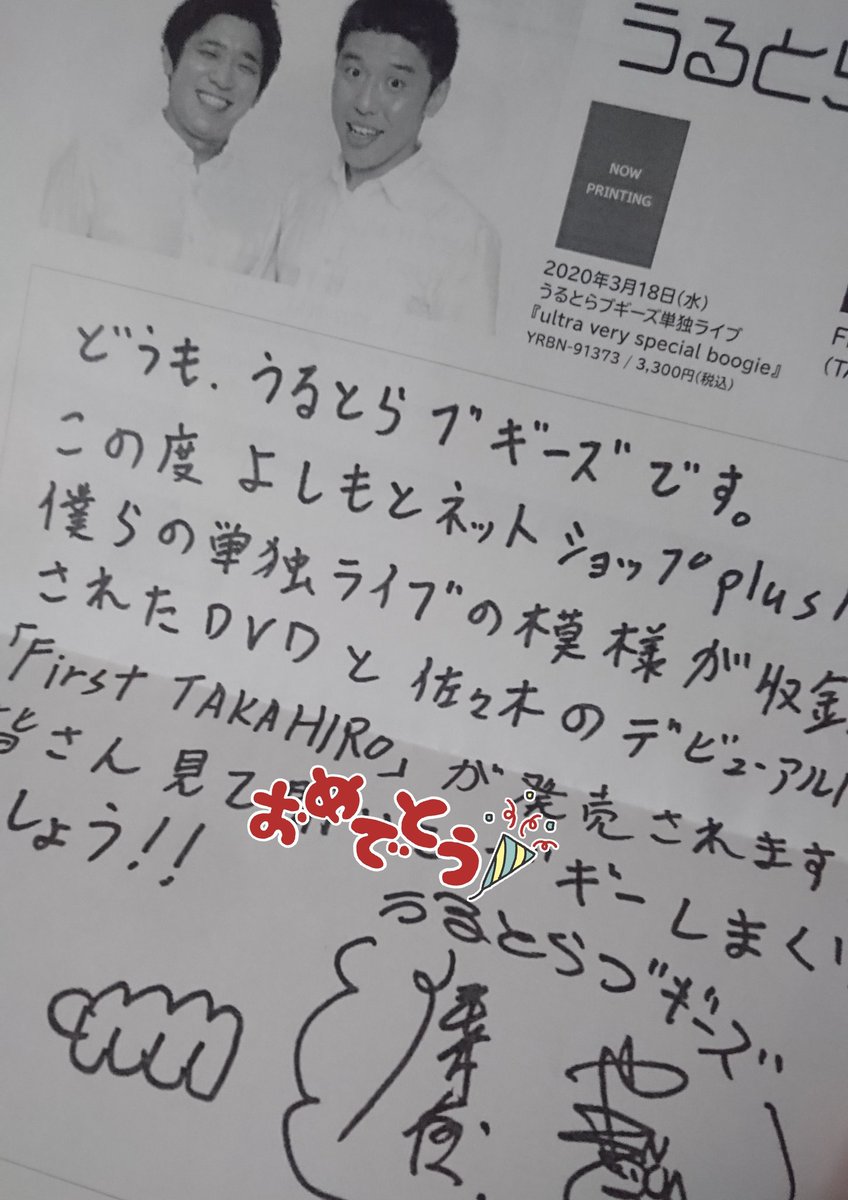 うるとら
NOW
PRINTING
2020年3月18日(水)
うるとらブギーズ単独ライブ
『ultra very special boogie』
YRBN-91373 / 3,300円(税込)
(TA
どうも、うるとらブギーズです。
この度 よしもとネットショップplus
僕らの単独ライブの模様が収
されたDVDと佐々木のデビューアル
「First TAKAHIRO」が発売されます
皆さん見て
ギーしまく
しょう!!
おめでとう
うるとらブギーズ